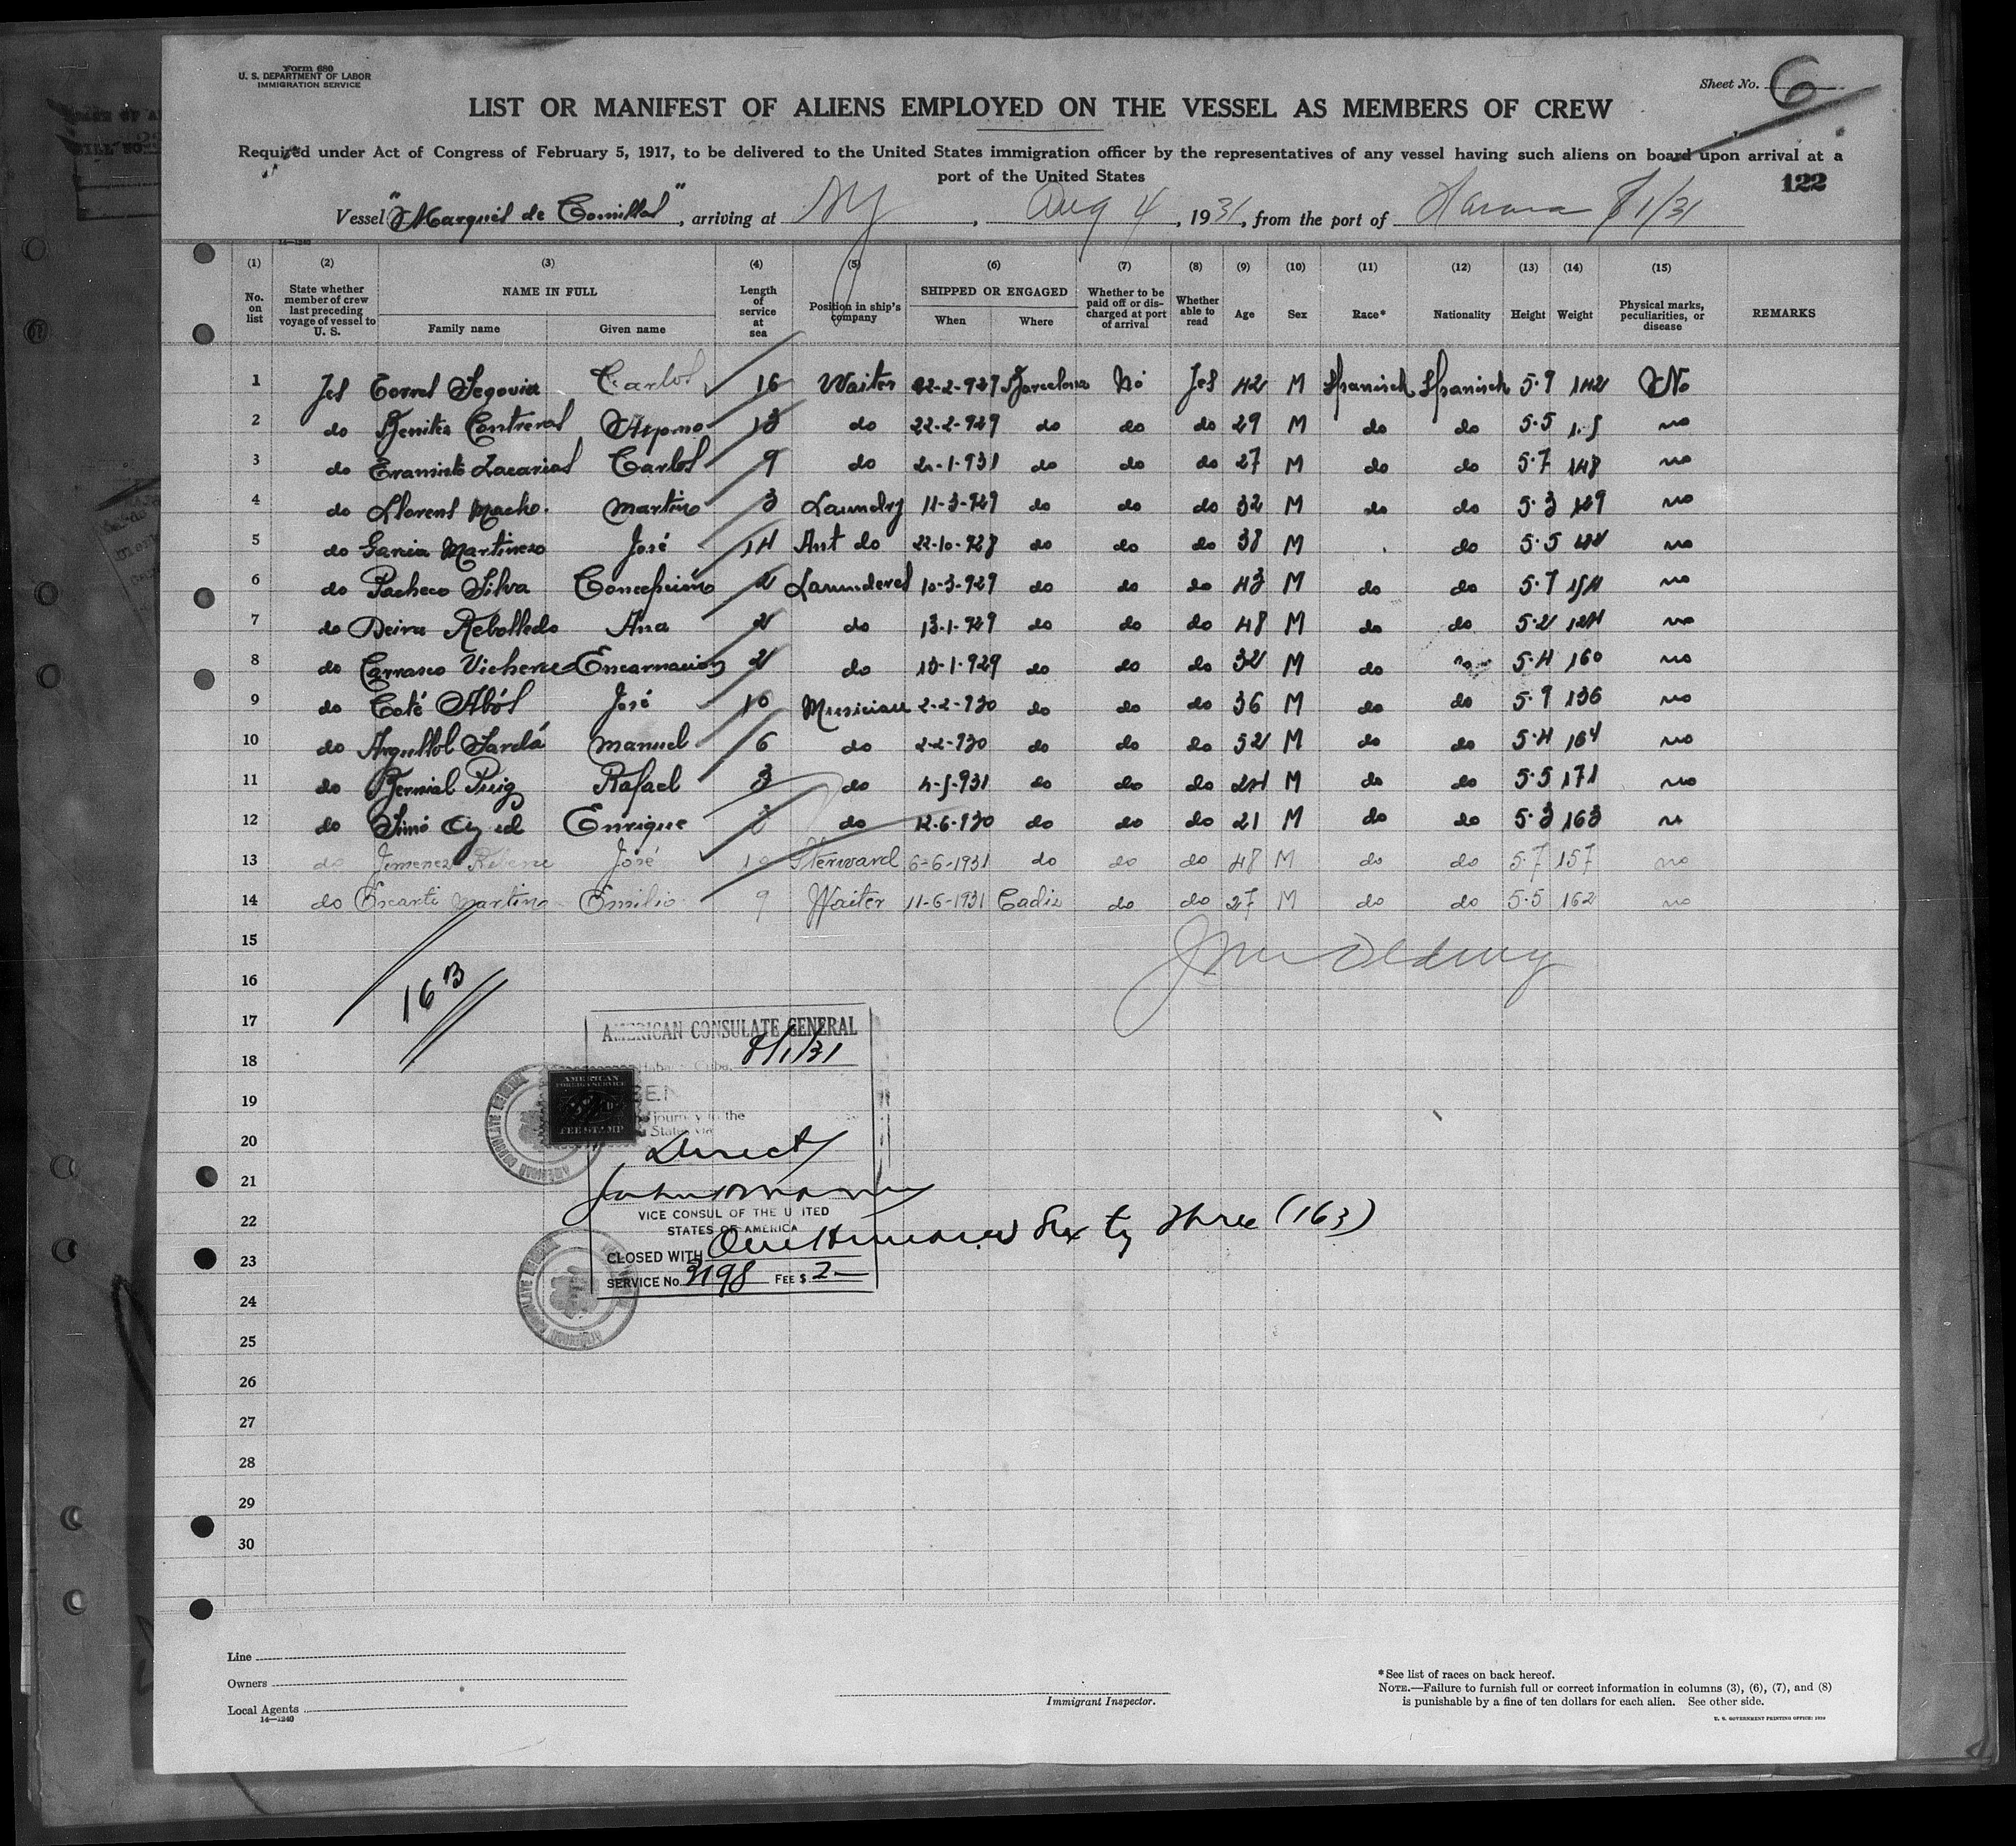 Form 680
U. S. DEPARTMENT OF LABOR
IMMIGRATION SERVICE
Sheet No. 6
LIST OR MANIFEST OF ALIENS EMPLOYED ON THE VESSEL AS MEMBERS OF CREW
Required under Act of Congress of February 5, 1917, to be delivered to the United States immigration officer by the representatives of any vessel having such aliens on board upon arrival at a
port of the United States
122
Vessel "Marqués de Comillas", arriving at NY, Aug 4, 1931, from the port of Havana 8/1/31
14—1240
(1) (2) (3) (4) (5) (6) (7) (8) (9) (10) (11) (12) (13) (14) (15)
No. on list
State whether member of crew last preceding voyage of vessel to U. S.
NAME IN FULL
Family name
Given name
Length of service at sea
Position in ship's company
SHIPPED OR ENGAGED
When
Where
Whether to be paid off or discharged at port of arrival
Whether able to read
Age
Sex
Race*
Nationality
Height
Weight
Physical marks, peculiarities, or disease
REMARKS
1 Jes Segovia Carlos 16 Waiter 22-2-929 Barcelona No Jes 42 M Spanisch Spanisch 5·9 142 No
2 do Benites Contreras 13 do 22-2-929 do do do 29 M do do 5·5 no
3 do Zacarias Carlos 9 do 2-1-931 do do do 27 M do do 5·7 148 no
4 do Llorens Macho. Martin 3 Laundry 11-3-929 do do do 32 M do do 5·3 129 no
5 do Garcia Martinez José 14 Ant do 22-10-928 do do do 38 M do 5·5 no
6 do Pacheco Silva Concepción 2 Launderes 10-3-929 do do do 43 M do do 5·7 154 no
7 do Neira Rebolledo Ana 2 do 13-1-929 do do do 48 M do do 5·2 124 no
8 do Carrasco Encarnacion 2 do 13-1-929 do do do 32 M do 5·4 160 no
9 do Coté Abós José 10 Musician 2-2-930 do do do 36 M do do 5·9 136 no
10 do Argullol Sardá Manuel 6 do 2-2-930 do do do 52 M do do 5·4 164 no
11 do Bernial Puig Rafael 3 do 4-5-931 do do do 24 M do do 5·5 171 no
12 do Simó Enrique 3 do 12-6-930 do do do 21 M do do 5·3 163 no
13 do Jimenez José Sterward 6-6-1931 do do do 48 M do do 5·7 157 no
14 do Escarti Martino Emilio 9 Waiter 11-6-1931 Cadiz do do 27 M do do 5·5 162 no
15
16
16 B
17
AMERICAN CONSULATE GENERAL
18
8/1/31
Habana, Cuba,
AMERICAN
FOREIGN SERVICE
FEE STAMP
SEEN
19
journey to the
States via
20
Direct
21
VICE CONSUL OF THE UNITED
22
STATES OF AMERICA
CLOSED WITH One Hundred Sixty Three (163)
23
SERVICE No. 3198 FEE $ 2—
24
25
26
27
28
29
30
Line
Owners
Local Agents
14—1240
Immigrant Inspector.
*See list of races on back hereof.
NOTE.—Failure to furnish full or correct information in columns (3), (6), (7), and (8)
is punishable by a fine of ten dollars for each alien. See other side.